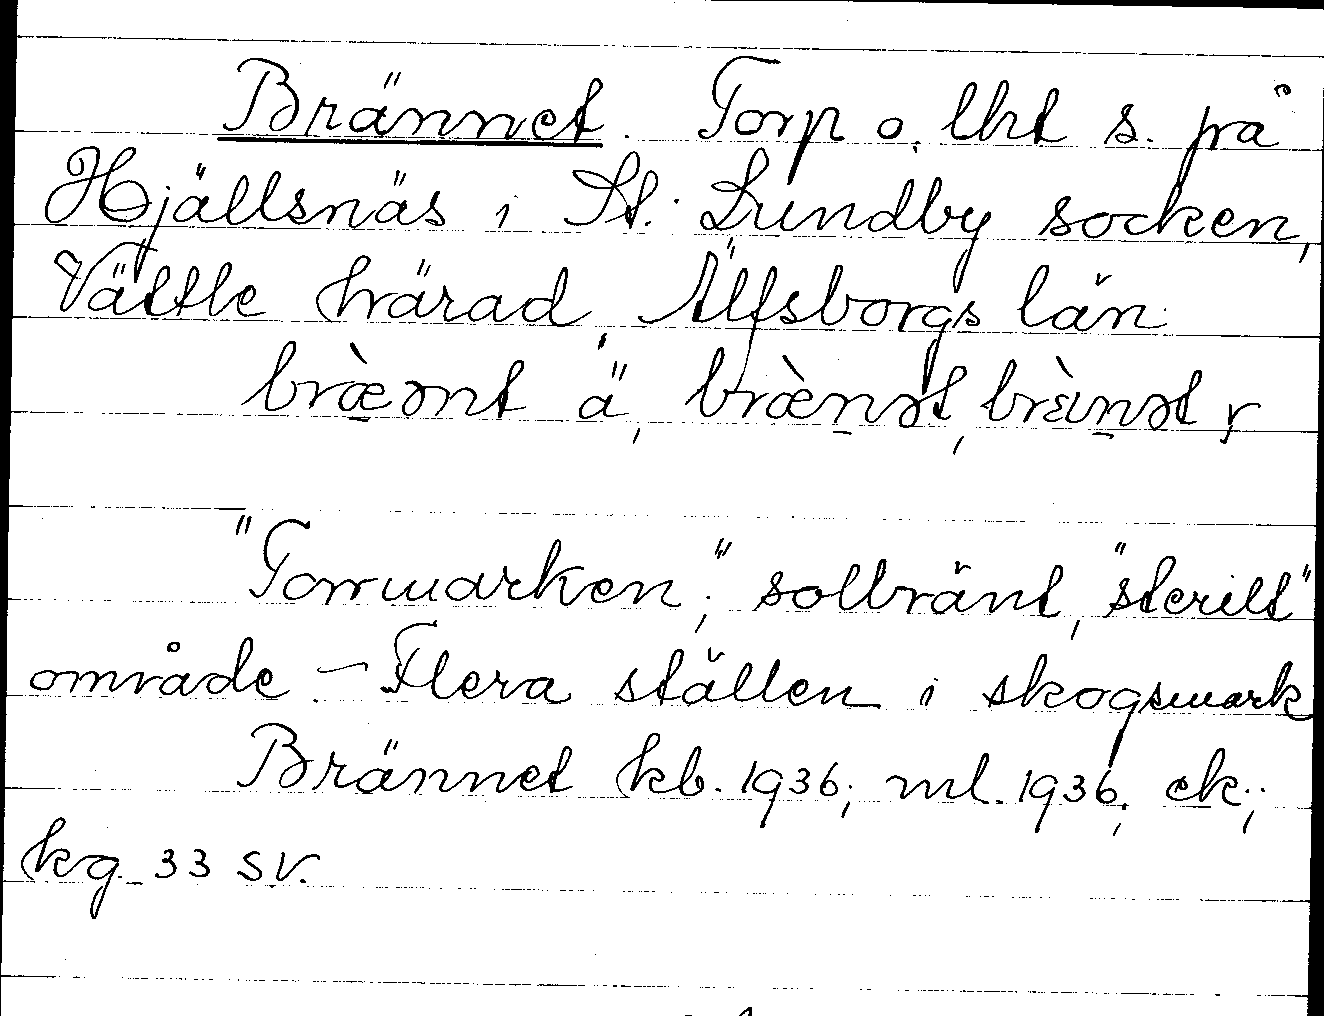 Brännet. Torp o. lht s. på
Hjällsnäs i St. Lundby socken,
Vättle härad, Älfsborgs län.
bræ̀ənt ä, bræ̀nət, bræ̀nət r
"Torrmarken", solbränt, "sterilt"
område – Flera ställen i skogsmark
Brännet kb. 1936; ml. 1936; ek.;
kg. 33 SV.